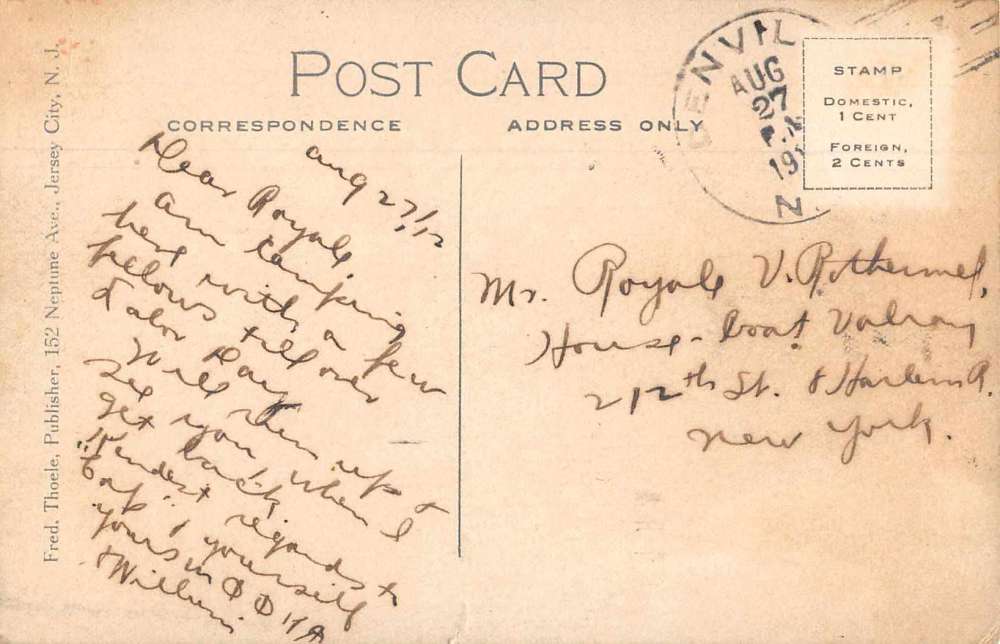 POST CARD
CORRESPONDENCE
ADDRESS ONLY
STAMP
DOMESTIC,
1 CENT
FOREIGN,
2 CENTS
DENVIL
AUG
27
19
N.
Fred. Thoele, Publisher, 152 Neptune Ave., Jersey City, N. J.
Aug 27/12
Dear Royale
Am camping
here with a few
fellows till over
Labor Day
Will run up &
see you when I
get back.
Kindest regards to
"Cap" & yourself
Yours in
William
Mr. Royale V. Rothermel,
House-boat Valray
212th St. & Harlem R.
New York.